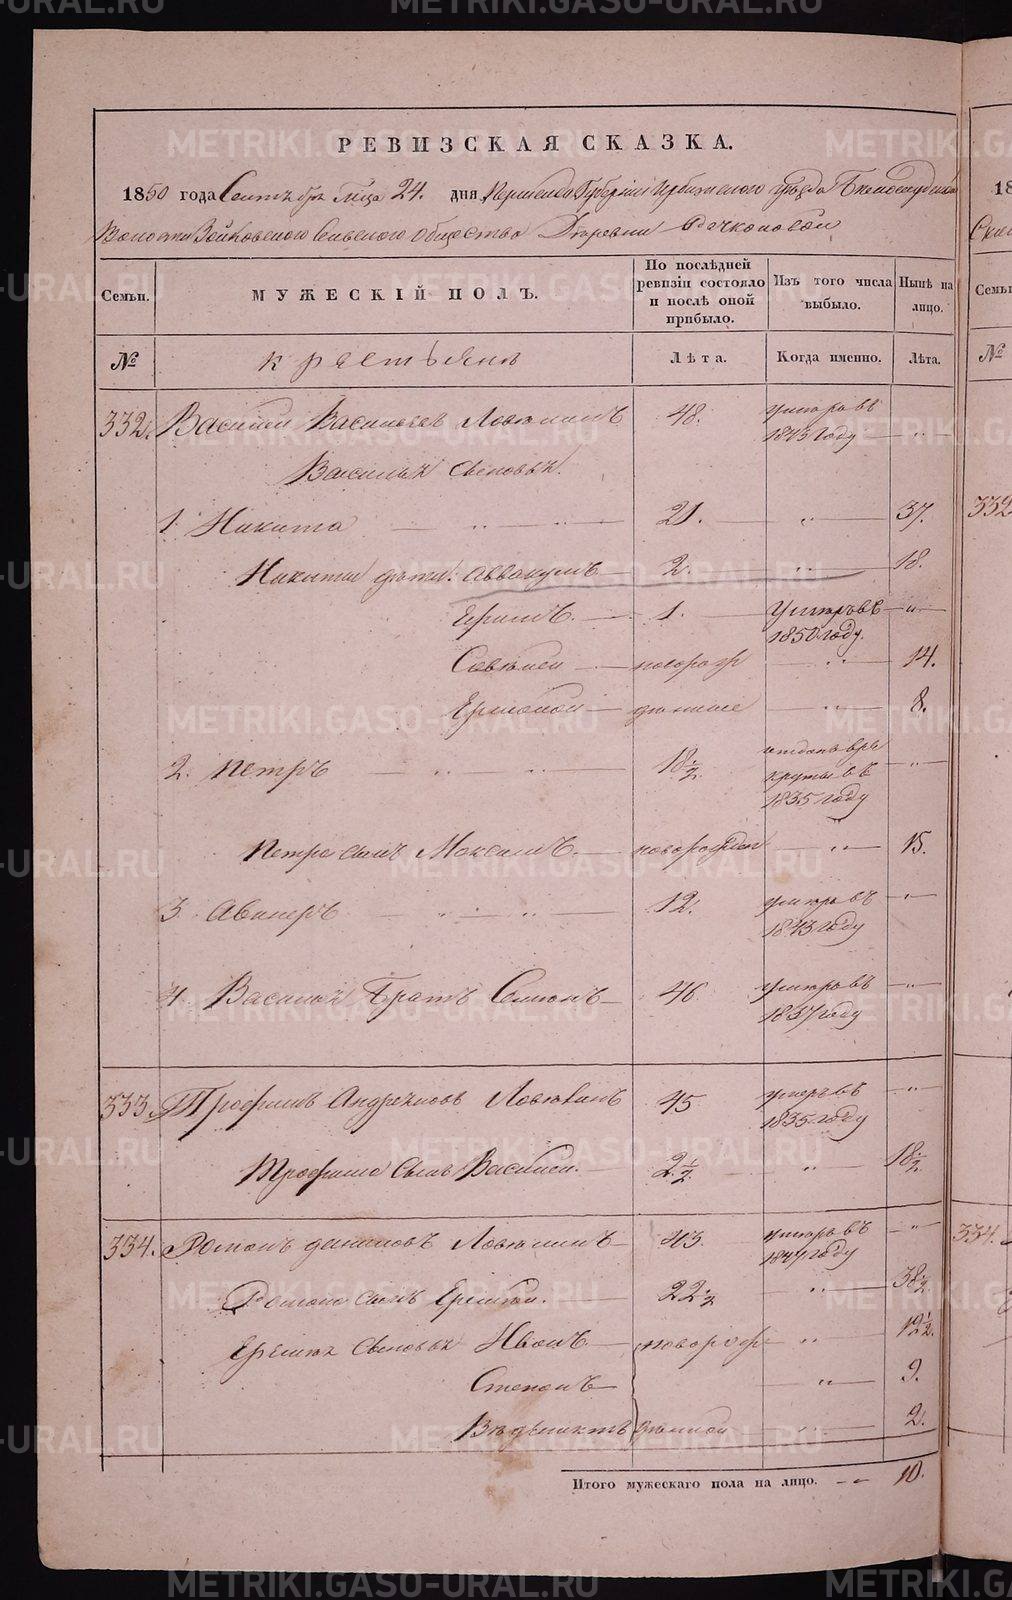 РЕВИЗСКАЯ СКАЗКА.
1850 года Сентября мѣсяца 24. дня Пермской Губернiи Ирбитскаго уѣзда Бѣлослудской
Волости Зайковскаго Сельскаго общества Деревни Рачкововой
Семьи. МУЖЕСКІЙ ПОЛЪ. По послѣдней ревизіи состояло и послѣ оной прибыло. Изъ того числа выбыло. Нынѣ на лицо.
№ крестьянъ Лѣта. Когда именно. Лѣта.
332. Василій Васильевъ 48. умеръ въ 1843 году — „ —
Василья сыновья.
1. Никита — „ — „ — 21. — „ — 37.
Никиты дѣти: Аввакумъ — 2. — „ — 18.
Ефимъ. — 1. Умеръ въ 1850 году. — „ —
Савелей — новорож — „ — 14.
Ермолай — денные — „ — 8.
2. Петръ — „ — „ — 18½ отданъ въ рекруты въ 1835 году — „ —
Петра сынъ Максимъ — новорожден — „ — 15.
3. Авенеръ — „ — „ — 12. умеръ въ 1843 году — „ —
4. Василья Братъ Семенъ — 46. умеръ въ 1837 году — „ —
333. Трофимъ Андреяновъ 45. умеръ въ 1835 году — „ —
Трофима сынъ Василей. — 2½ — „ — 18½
334. Романъ Даниловъ 43. умеръ въ 1847 году — „ —
Романа сынъ Еремѣй. — 22½ — „ — 38½
Еремѣя сыновья Иванъ — новорож — „ — 12½.
Степанъ — „ — 9.
Венедиктъ денной — „ — 2.
Итого мужескаго пола на лицо. — „ — 10.
METRIKI.GASO-URAL.RU